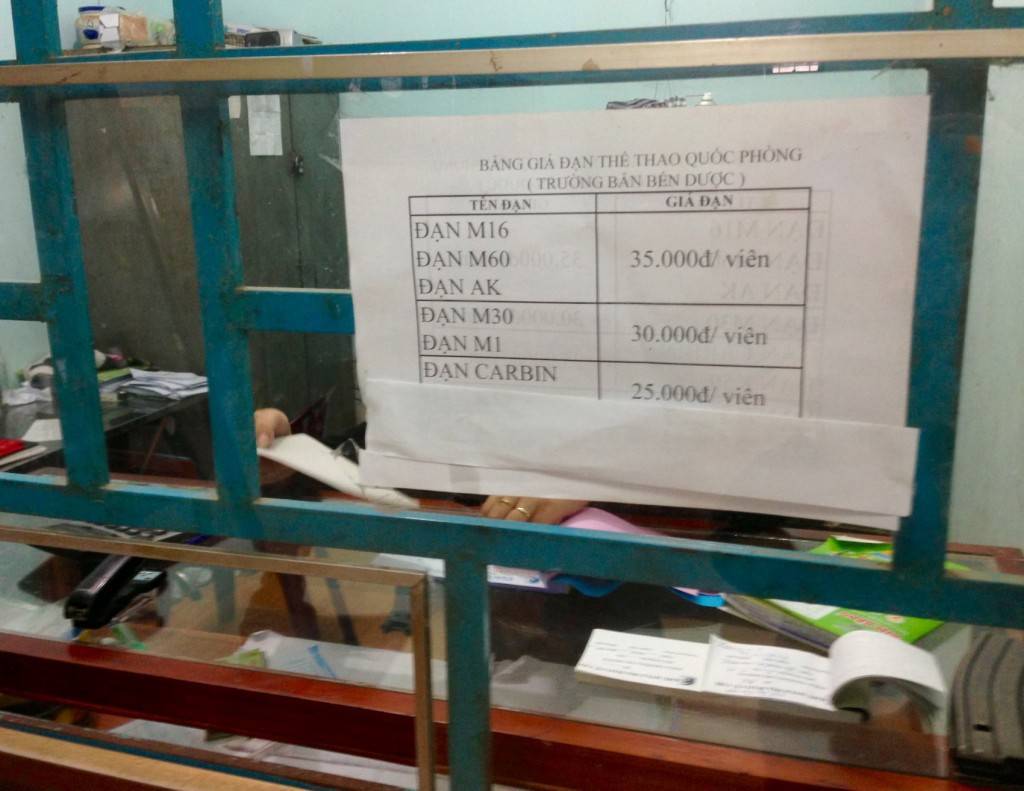 BẢNG GIÁ ĐẠN THỂ THAO QUỐC PHÒNG
( TRƯỜNG BẮN BẾN DƯỢC )
TÊN ĐẠN GIÁ ĐẠN
ĐẠN M16
ĐẠN M60 35.000đ/ viên
ĐẠN AK
ĐẠN M30
ĐẠN M1 30.000đ/ viên
ĐẠN CARBIN
25.000đ/ viên